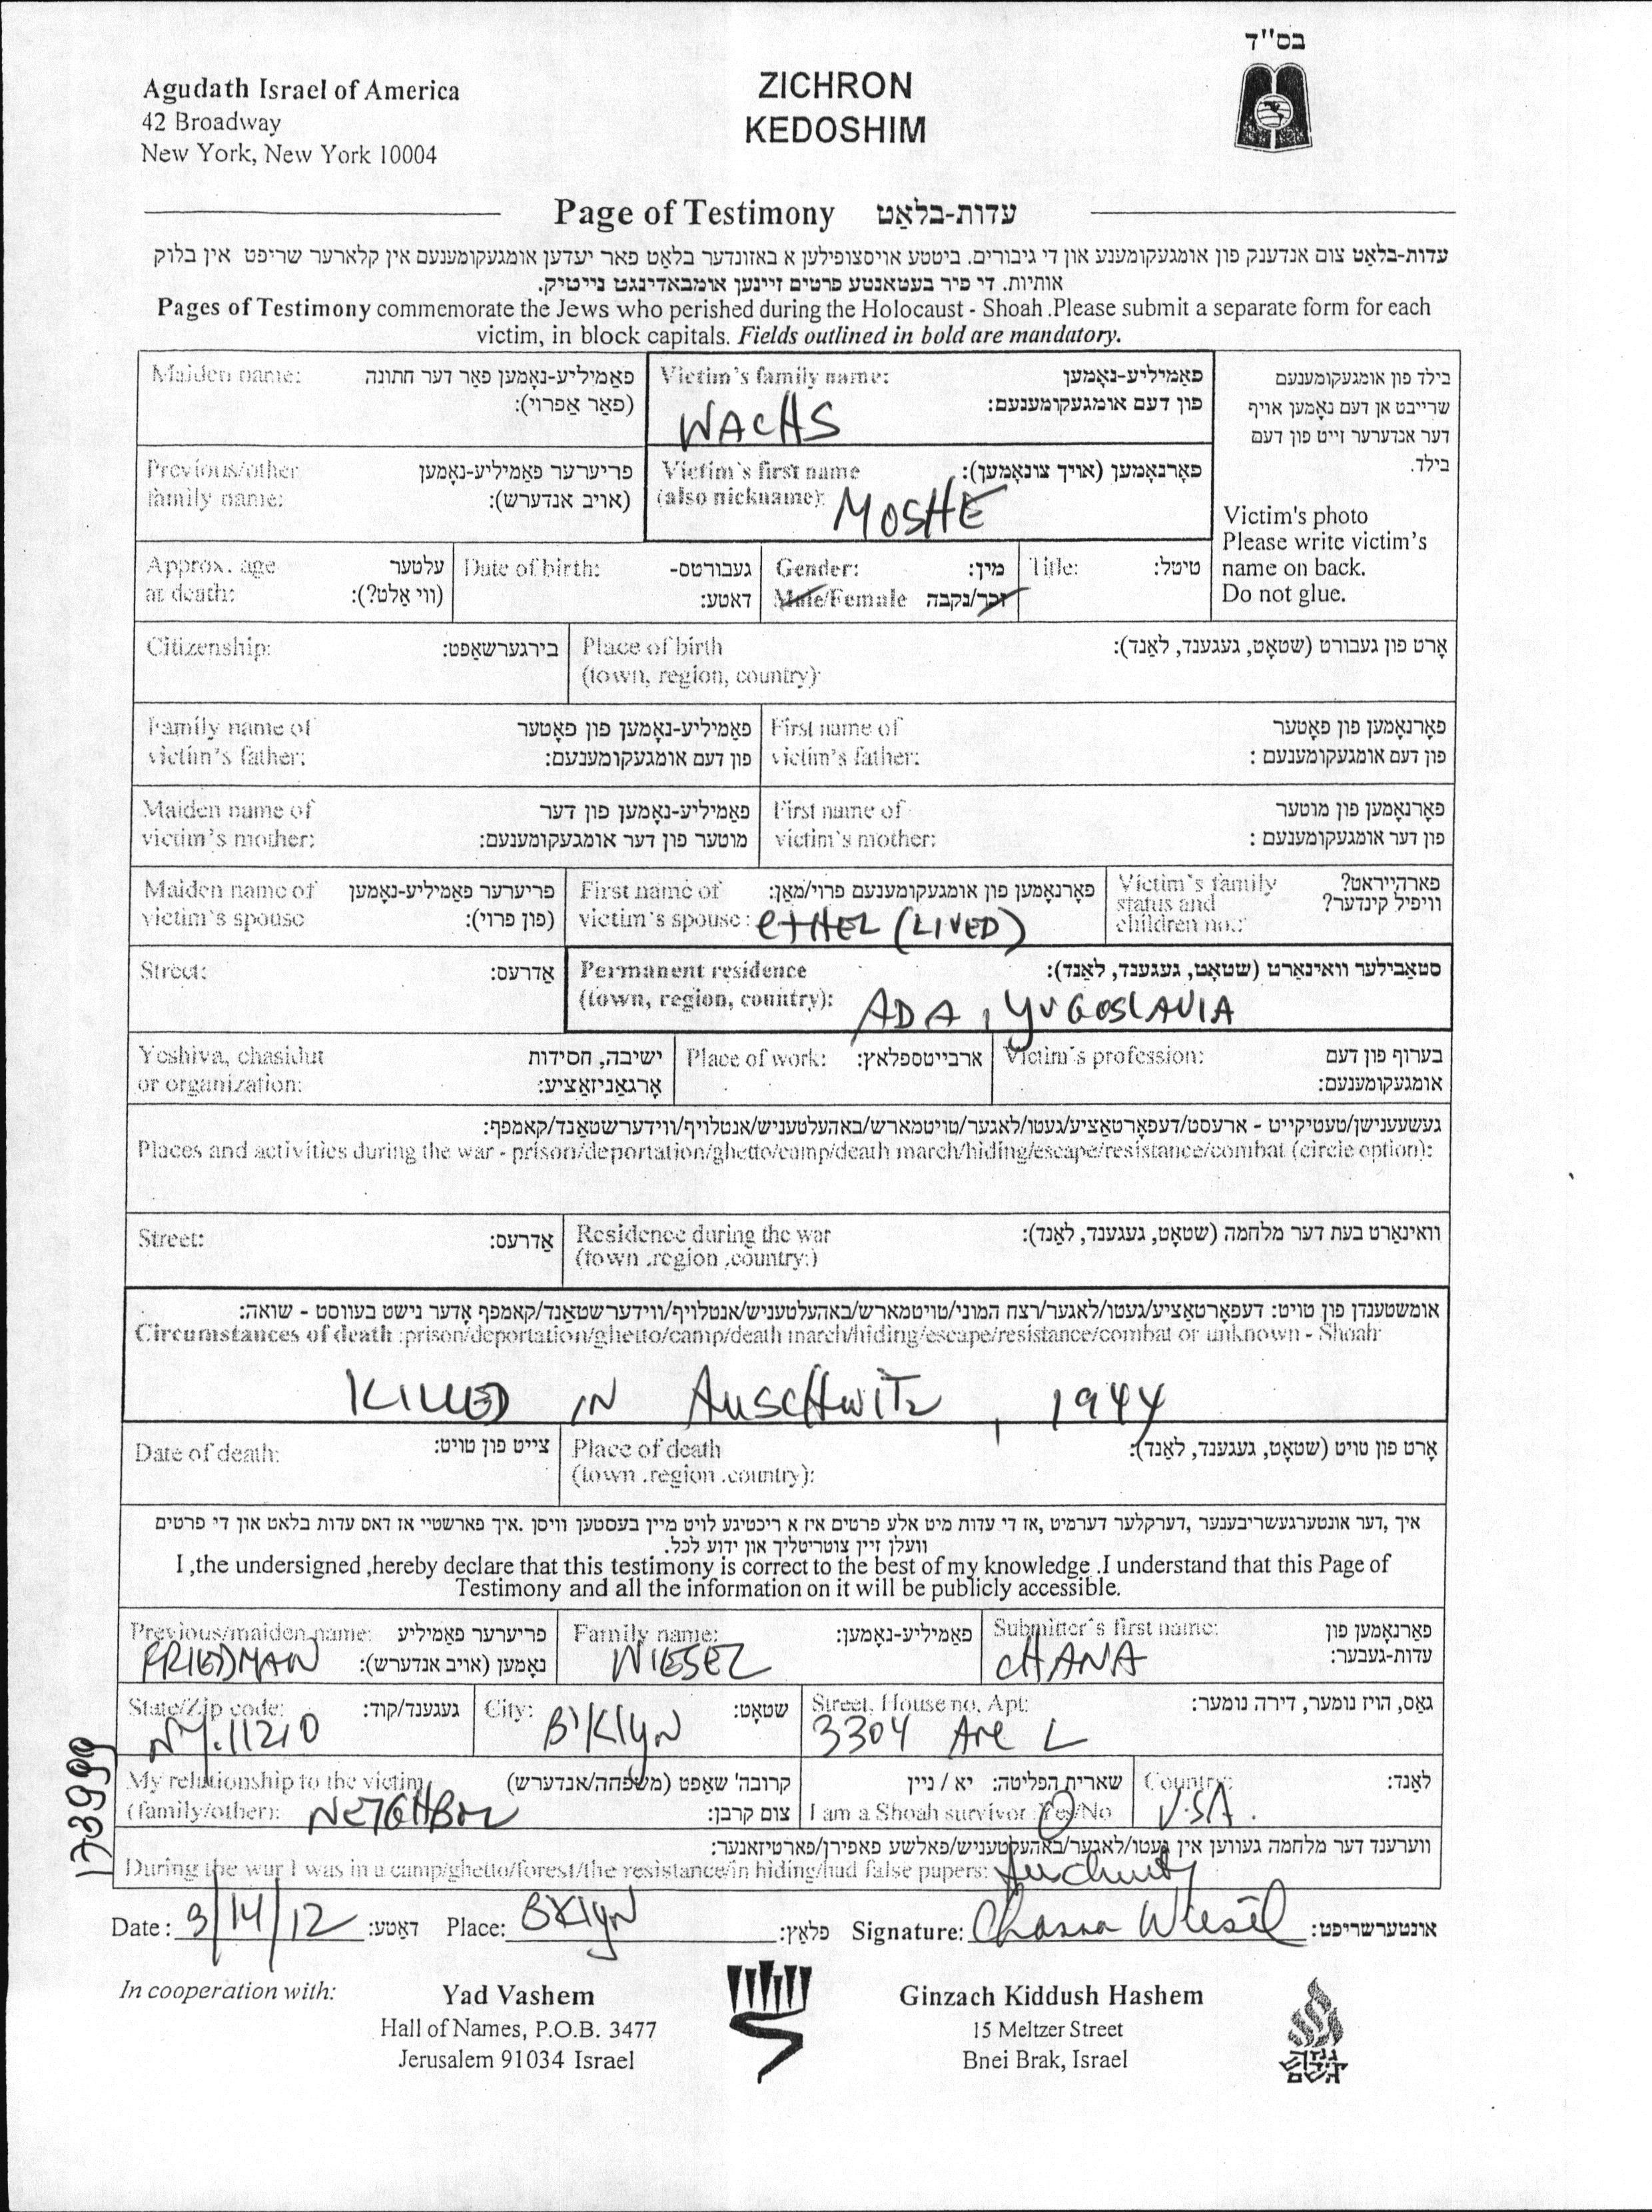 בס"ד
Agudath Israel of America
42 Broadway
New York, New York 10004
ZICHRON
KEDOSHIM
Page of Testimony עדות-בלאַט
עדות-בלאַט צום אנדענק פון אומגעקומענע און די גיבורים. ביטטע אויסצופילען א באזונדער בלאַט פאר יעדען אומגעקומענעם אין קלארער שריפט אין בלוק
אותיות. די פיר בעטאנטע פרטים זיינען אומבאדינגט נייטיק.
Pages of Testimony commemorate the Jews who perished during the Holocaust - Shoah .Please submit a separate form for each
victim, in block capitals. Fields outlined in bold are mandatory.
Maiden name: פאַמיליע-נאָמען פאַר דער חתונה
(פאַר אַפרוי):
Victim's family name: פאַמיליע-נאָמען
פון דעם אומגעקומענעם:
WACHS
בילד פון אומגעקומענעם
שרייבט אן דעם נאָמען אויף
דער אנדערער זייט פון דעם
בילד.
Victim's photo
Please write victim's
name on back.
Do not glue.
Previous/other פריערער פאַמיליע-נאָמען
family name: (אויב אנדערש):
Victim's first name פאָרנאָמען (אויך צונאָמען):
(also nickname): MOSHE
Approx. age עלטער
at death: (ווי אַלט?):
Date of birth: געבורטס-
דאטע:
Gender: מין:
Male/Female זכר/נקבה
Title: טיטל:
Citizenship: בירגערשאַפט:
Place of birth אָרט פון געבורט (שטאָט, געגענד, לאַנד):
(town, region, country):
Family name of פאַמיליע-נאָמען פון פאָטער
victim's father: פון דעם אומגעקומענעם:
First name of פאָרנאָמען פון פאָטער
victim's father: פון דעם אומגעקומענעם :
Maiden name of פאַמיליע-נאָמען פון דער
victim's mother: מוטער פון דער אומגעקומענעם:
First name of פאָרנאָמען פון מוטער
victim's mother: פון דער אומגעקומענעם :
Maiden name of פריערער פאַמיליע-נאָמען
victim's spouse (פון פרוי):
First name of פאָרנאָמען פון אומגעקומענעם פרוי/מאַן:
victim's spouse : eTHEL (LIVED)
Victim's family פארהייראט?
status and וויפיל קינדער?
children no.:
Street: אַדרעס:
Permanent residence סטאַבילער וואוינאָרט (שטאָט, געגענד, לאַנד):
(town, region, country): ADA, YUGOSLAVIA
Yeshiva, chasidut ישיבה, חסידות
or organization: אָרגאַניזאַציע:
Place of work: ארבייטספלאץ:
Victim's profession: בערוף פון דעם
אומגעקומענעם:
געשעענישן/טעטיקייט - ארעסט/דעפאָרטאַציע/געטו/לאגער/טויטמארש/באהעלטעניש/אנטלויף/ווידערשטאַנד/קאמפף:
Places and activities during the war - prison/deportation/ghetto/camp/death march/hiding/escape/resistance/combat (circle option):
Street: אַדרעס:
Residence during the war וואוינאָרט בעת דער מלחמה (שטאָט, געגענד, לאַנד):
(town .region .country:)
אומשטענדן פון טויט: דעפאָרטאַציע/געטו/לאגער/רצח המוני/טויטמארש/באהעלטעניש/אנטלויף/ווידערשטאַנד/קאמפף אָדער נישט בעוואוסט - שואה:
Circumstances of death :prison/deportation/ghetto/camp/death march/hiding/escape/resistance/combat or unknown - Shoah
KILLED IN AUSCHWITZ, 1944
Date of death: צייט פון טויט:
Place of death אָרט פון טויט (שטאָט, געגענד, לאַנד):
(town .region .country):
איך ,דער אונטערגעשריבענער ,דערקלער דערמיט ,אז די עדות מיט אלע פרטים איז א ריכטיגע לויט מיין בעסטען וויסן .איך פארשטיי אז דאס עדות בלאט און די פרטים
וועלן זיין צוטריטליך און ידוע לכל.
I ,the undersigned ,hereby declare that this testimony is correct to the best of my knowledge .I understand that this Page of
Testimony and all the information on it will be publicly accessible.
Previous/maiden name: פריערער פאַמיליע
FRIEDMAN נאָמען (אויב אנדערש):
Family name: פאַמיליע-נאָמען:
WIESEL
Submitter's first name: פאָרנאָמען פון
CHANA עדות-געבער:
State/Zip code: געגענד/קוד:
NY. 11210
City: שטאָט:
B'Klyn
Street, House no, Apt: גאַס, הויז נומער, דירה נומער:
3304 Ave L
My relationship to the victim קרובה' שאַפט (משפחה/אנדערש)
(family/other): NEIGHBOR צום קרבן:
שארית הפליטה: יא / ניין
I am a Shoah survivor Yes/No
Country: לאַנד:
U.S.A.
ווערענד דער מלחמה געווען אין געטו/לאגער/באהעלטעניש/פאלשע פאפירן/פארטיזאנער:
During the war I was in a camp/ghetto/forest/the resistance/in hiding/had false papers: Auschwitz
Date : 3/14/12 דאַטע: Place: BKlyn פלאַץ: Signature: Chana Wiesel אונטערשריפט:
173999
In cooperation with:
Yad Vashem
Hall of Names, P.O.B. 3477
Jerusalem 91034 Israel
Ginzach Kiddush Hashem
15 Meltzer Street
Bnei Brak, Israel
גנזך
קידוש
השם